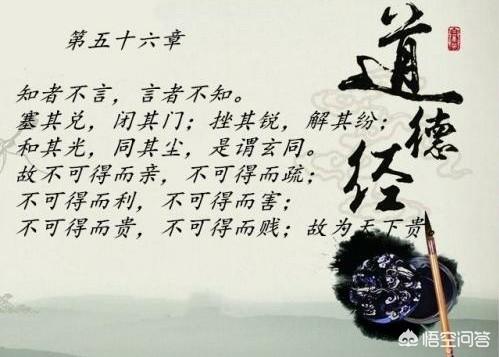 第五十六章
知者不言，言者不知。
塞其兑，闭其门；挫其锐，解其纷；
和其光，同其尘，是谓玄同。
故不可得而亲，不可得而疏；
不可得而利，不可得而害；
不可得而贵，不可得而贱；故为天下贵。
道德经
悟空问答